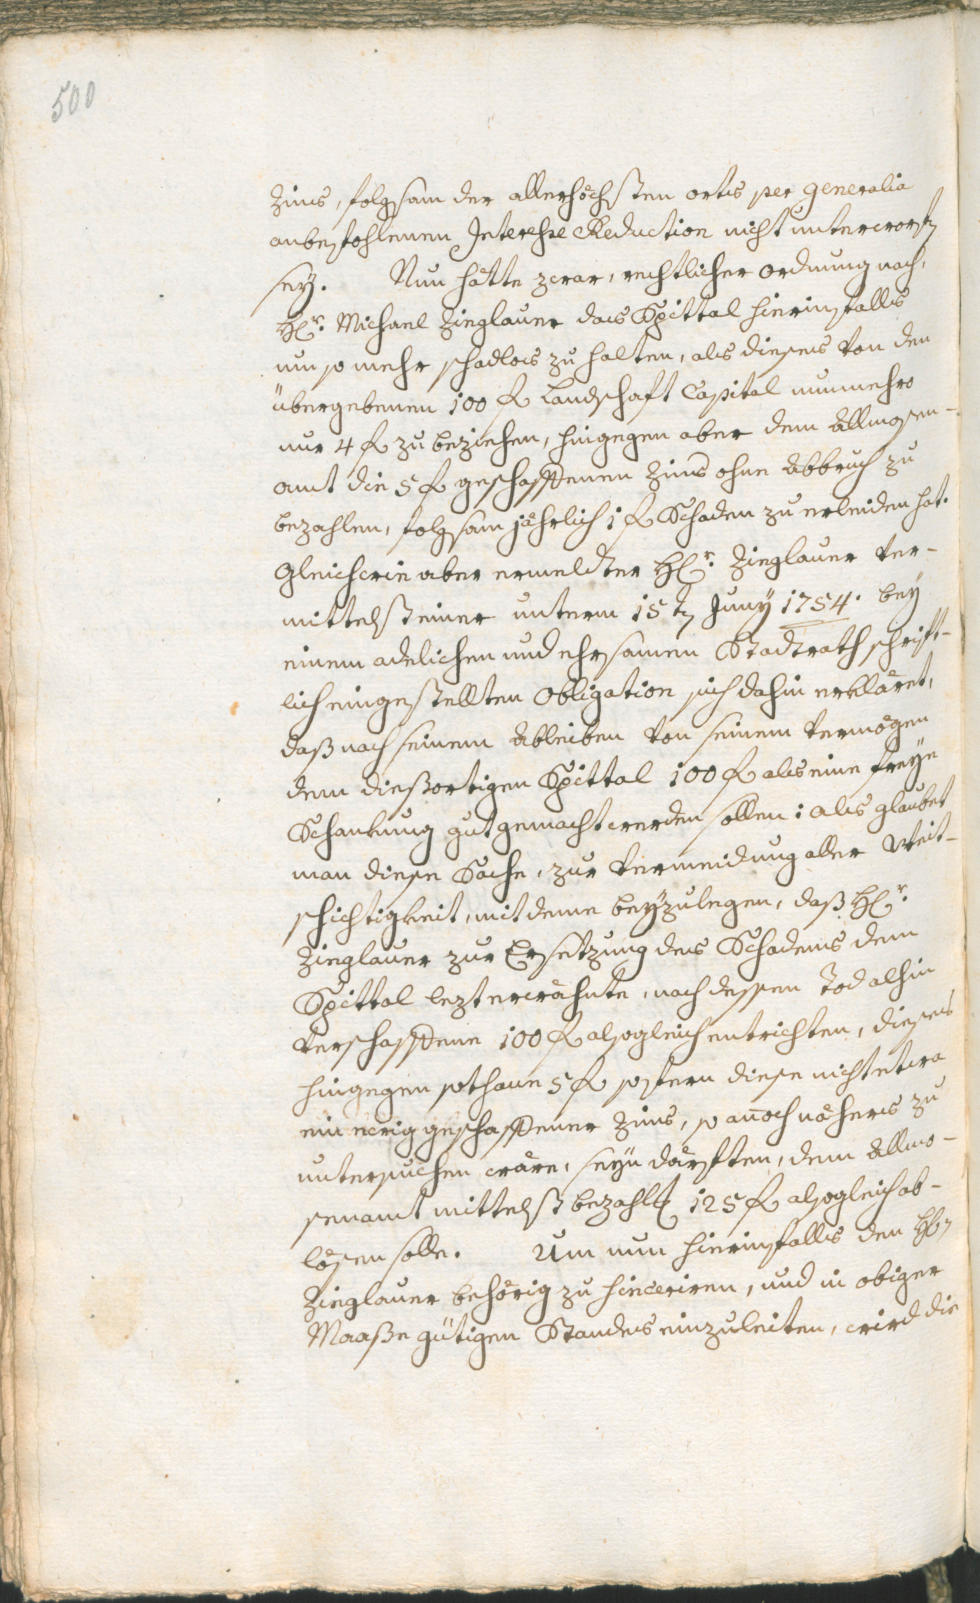 500
Zins, folgsam der allerhöchsten orts per generalia
anbefohlenen Interehse Reduction nicht unterworfen
sey. Nun hätte zwar, rechtlicher ordnung nach,
H[er]r. Michael Zieglauer das Spittal hierinfalls
um so mehr schadlos zu halten, als dieses von den
übergebenen 100 f Landschaft Capital nunmehro
nur 4 f zu beziehen, hingegen aber dem Allmosen-
amt die 5 f geschaffenen Zins ohne Abbruch zu
bezahlen, folgsam jährlich 1 f Schaden zu erleiden hat.
Gleichwie aber ermeldter H[er]r. Zieglauer ver-
mittelst einer unterm 15t[en] Juny 1754. bey
einem adelichen und ehrsamen Stadtrath schrift-
lich eingestellten Obligation sich dahin erkläret,
daß nach seinem Ableiben von seinem Vermögen
dem dießortigen Spittal 100 f als eine freye
Schankung gutgemacht werden sollen: als glaubet
man diese Sache, zur Vermeidung aller Weit-
schichtigkeit, mit deme beyzulegen, daß H[er]r.
Zieglauer zur Ersetzung des Schadens dem
Spittal lezt erwähnte, nach dessen Tod alhin
verschaffene 100 f alsogleich entrichten, dieses
hingegen sothane 5 f sofern diese nicht etwa
ein ewig geschaffener Zins, so anoch näheres zu
untersuchen wäre, seyn därften, dem Allmo-
senamt mittelst bezahlt 125 f alsogleich ab-
lösen solle. Um nun hierinfalls den H[er]rn
Zieglauer behörig zu hinceriren, und in obiger
Maaße gütigen Standes einzuleiten, wird die